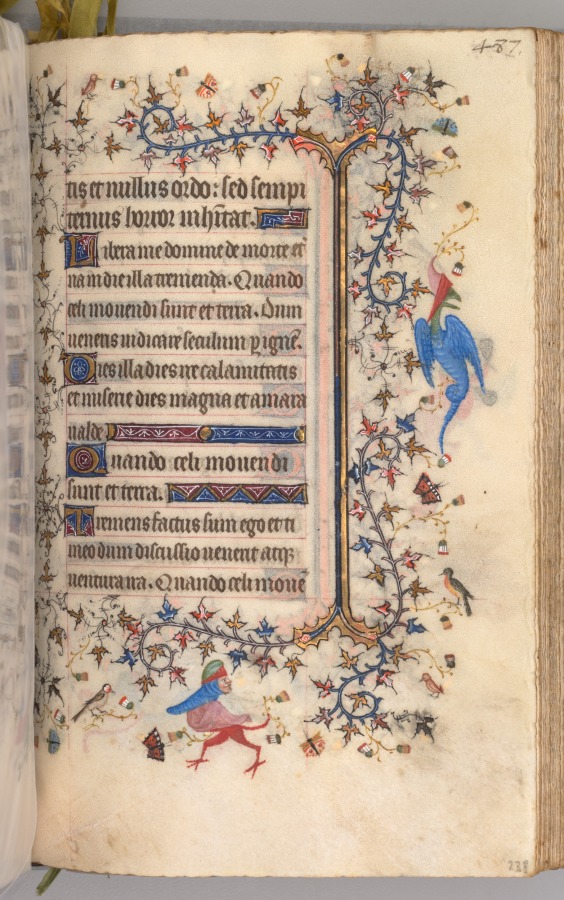 487.
tis et nullus ordo: sed sempi
ternus horror inh̄itat.
Libera me domine de morte et̄
na in die illa tremenda. Quando
celi mouendi sunt et terra. Dum
ueneris iudicare seculum p ignē.
Dies illa dies ire calamitatis
et miserie dies magna et amara
ualde
Quando celi mouendi
sunt et terra.
Tremens factus sum ego et ti
meo dum discussio uenerit atqꝫ
uentura ira. Quando celi mouē
238